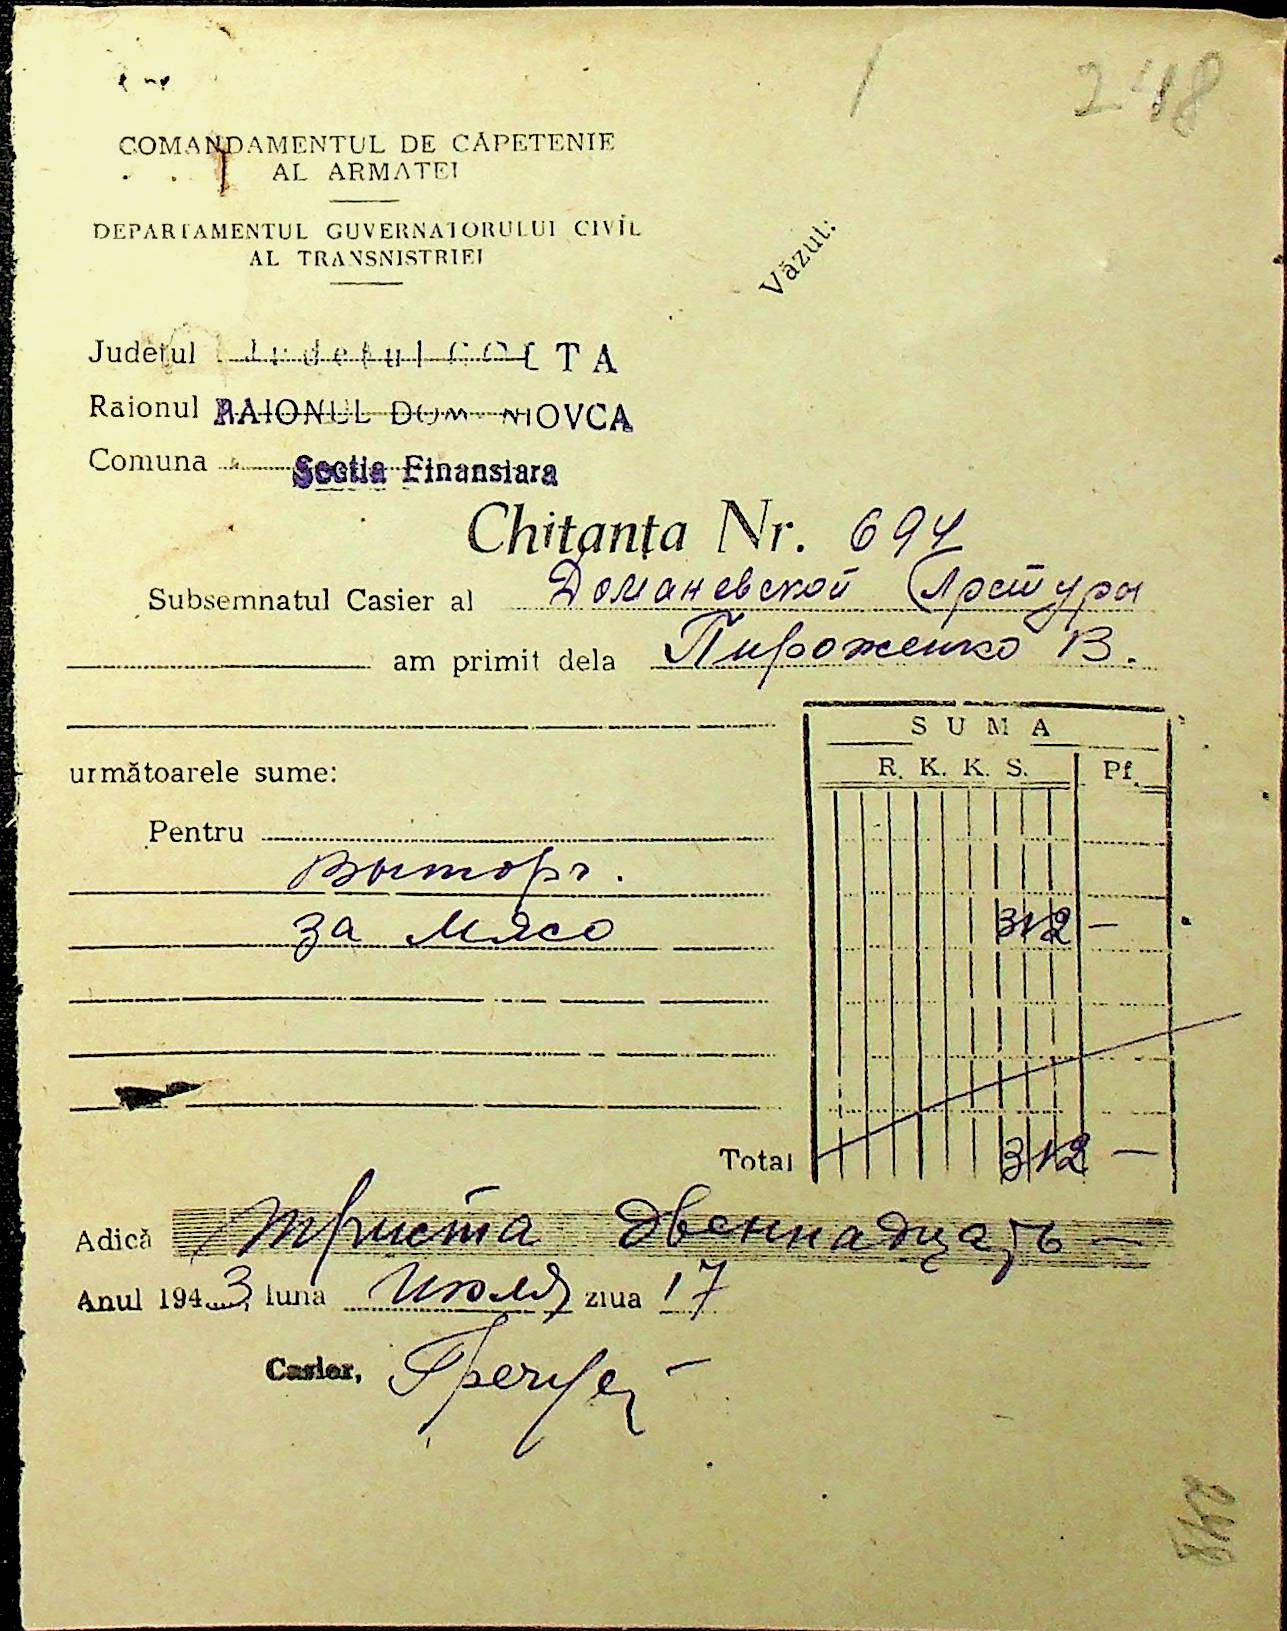 1 248
COMANDAMENTUL DE CĂPETENIE
AL ARMATEI
DEPARTAMENTUL GUVERNATORULUI CIVIL
AL TRANSNISTRIEI
Văzut:
Județul Judetul GOLTA
Raionul RAIONUL DOMANIOVCA
Comuna Sectia Finansiara
Chitanța Nr. 694
Subsemnatul Casier al Доманевской Претуры
am primit dela Пироженко В.
SUMA
următoarele sume:
R. K. K. S. Pf.
Pentru
Выторг.
за мясо 312 —
Total 312 —
Adică триста двеннадцать —
Anul 1943 luna Июля ziua 17
Casier,
248